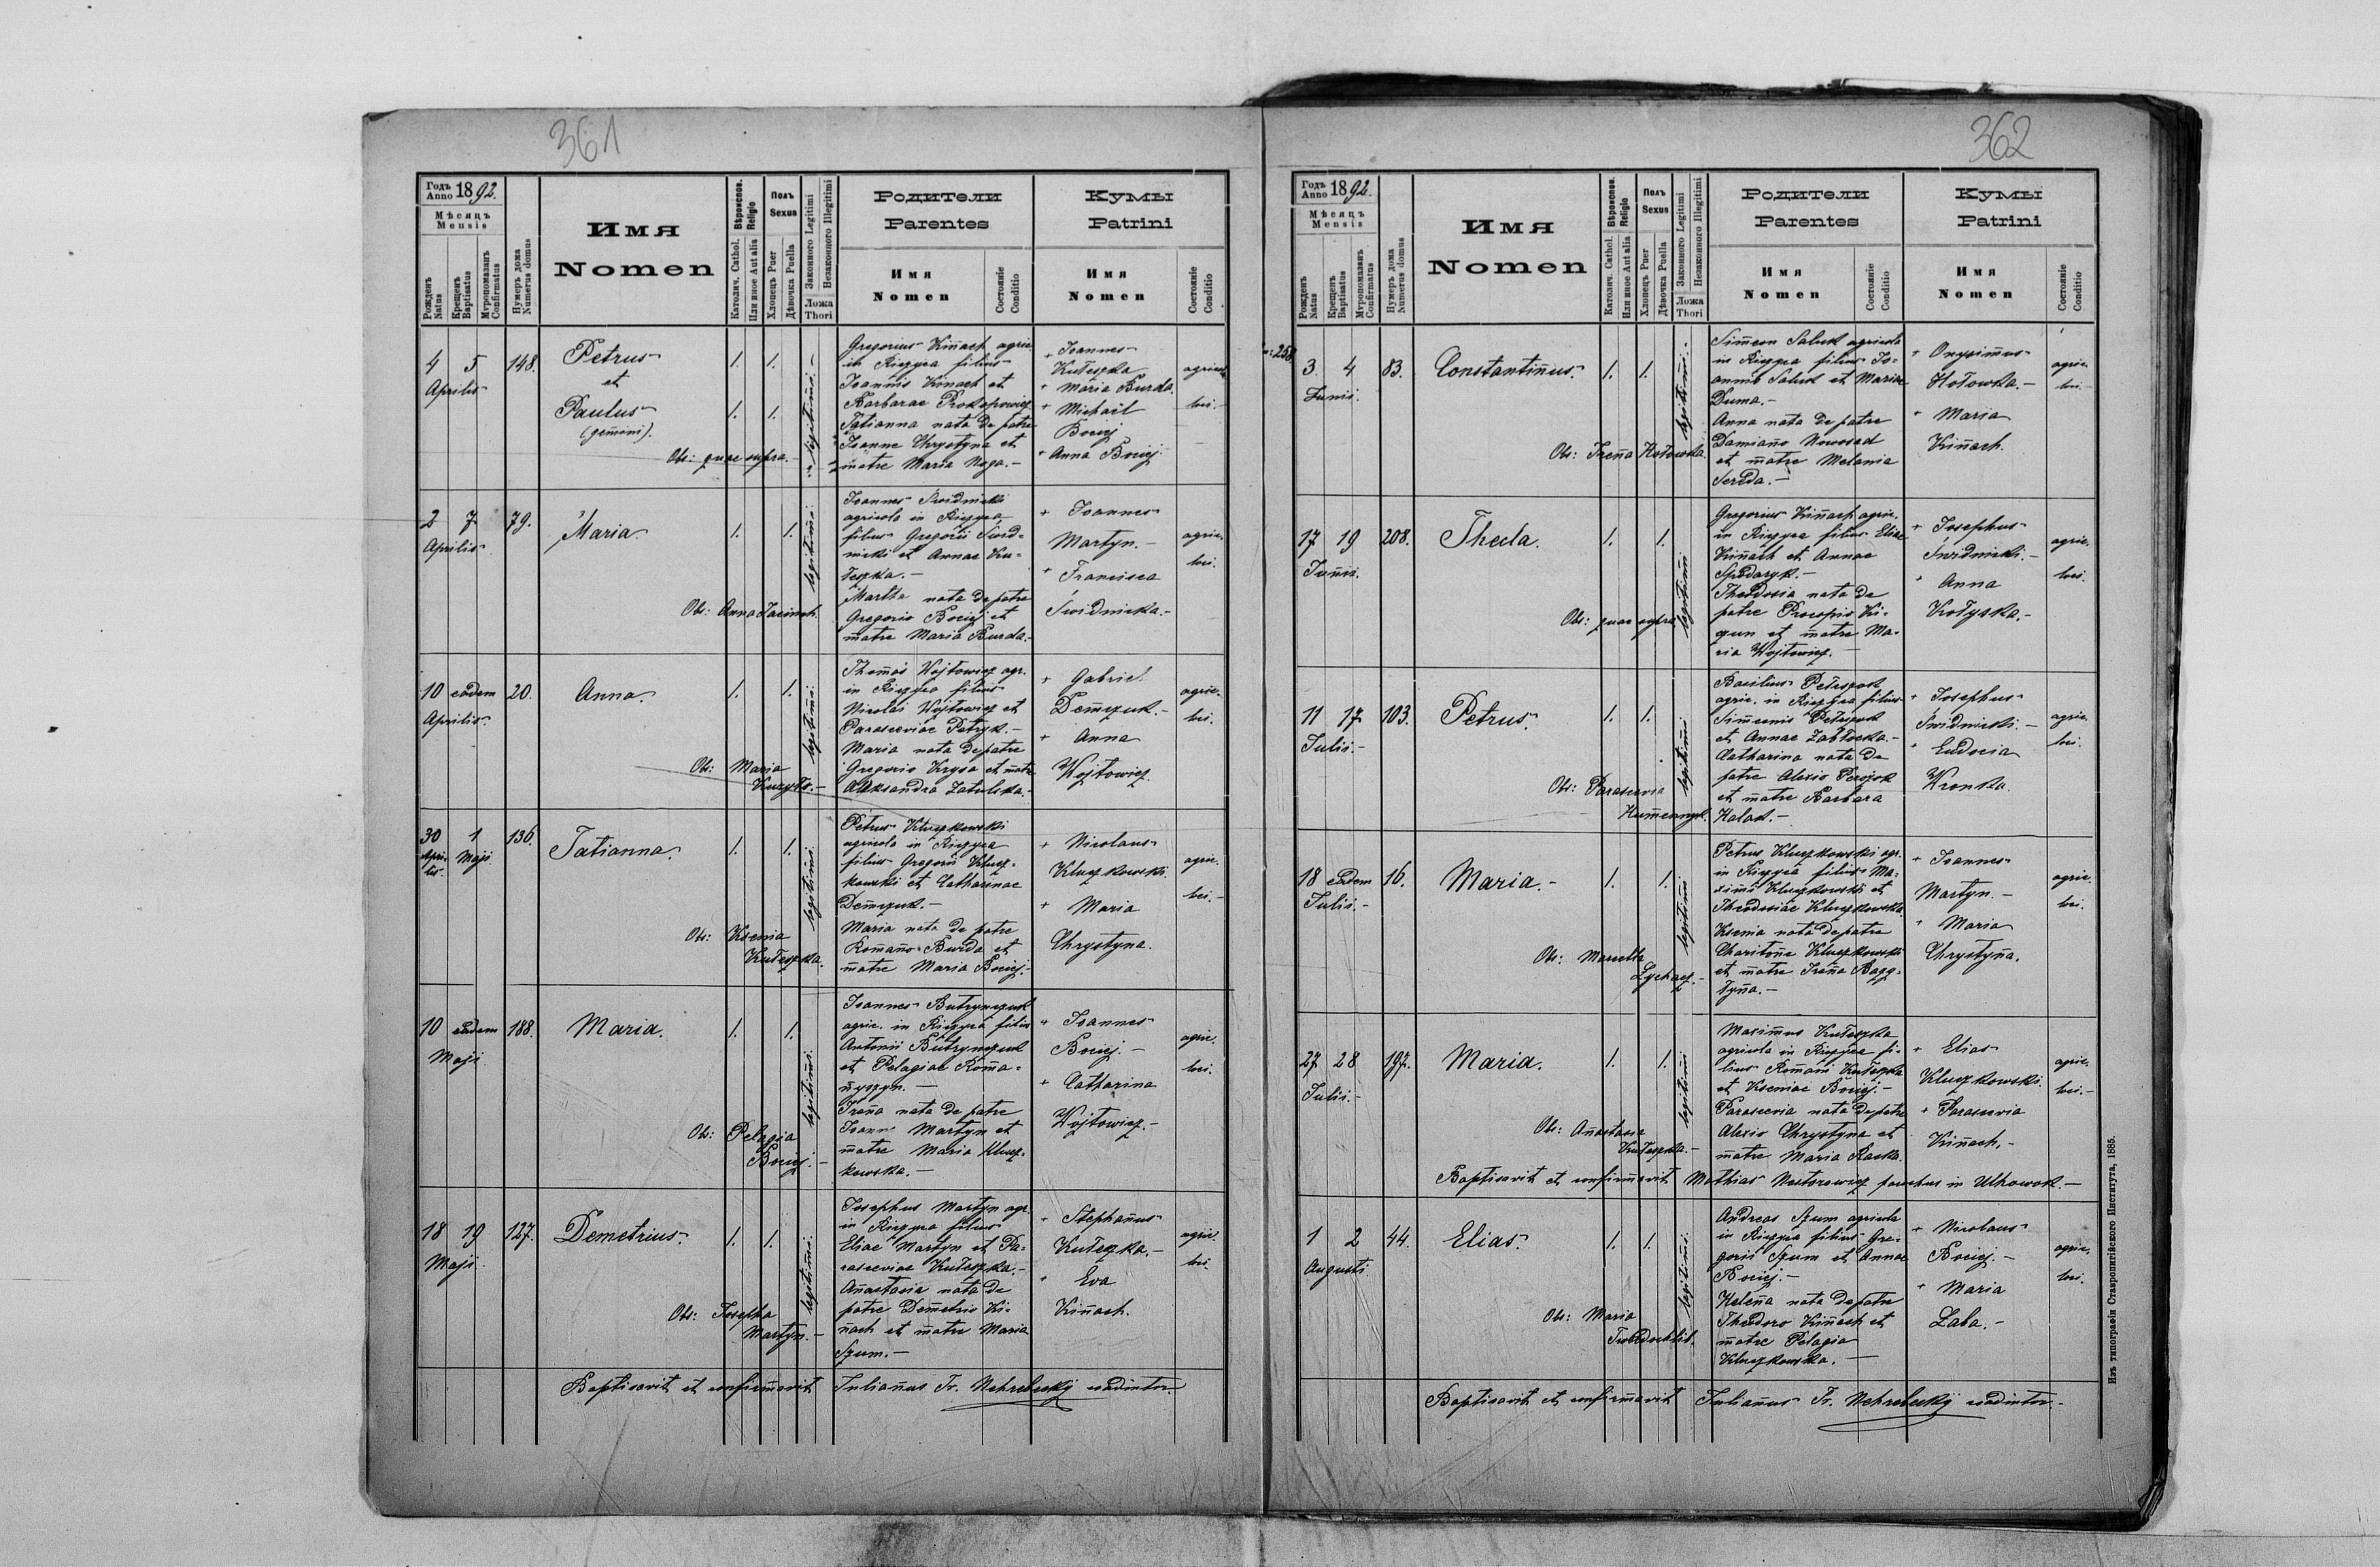 361
Годъ Anno 1892.
Мѣсяцъ Mensis
Рожденъ Natus
Крещенъ Baptisatus
Муропомазанъ Confirmatus
Нумеръ дома Numerus domus
Имя
Nomen
Вѣроисповѣд. Religio
Католич. Cathol.
Или иное Aut alia
Полъ Sexus
Хлопецъ Puer
Дѣвочка Puella
Законного Legitimi
Незаконного Illegitimi
Ложа Thori
Родители
Parentes
Имя Nomen
Состояніе Conditio
Кумы
Patrini
Имя Nomen
Состояніе Conditio
4 5 148.
Aprilis
Petrus
et
Paulus
(gemini).
1. 1.
1. 1.
legitimi
Obs: quae supra.
Gregorius Kinach agric.
in Rzyczca filius
Joannis Kinach et
Barbarae Prokopowicz
Tatianna nata de patre
Joanne Chrystyna et
matre Maria Noga.-
+ Joannes
Kuteszka
+ Maria Burda.
+ Michaël
Bociej
+ Anna Bociej.
agricolae
loci.
2 7 79.
Aprilis
Maria.
1. 1.
legitimi
Obs: Anna Jacinch.
Joannes Świdnicki
agricola in Rzyczca
filius Gregorii Świd-
nicki et Annae Ku-
teszka.-
Martha nata de patre
Gregorio Bociej et
matre Maria Burda.-
+ Joannes
Martyn.-
+ Francisca
Świdnicka.-
agric.
loci.
10 eadem 20.
Aprilis.
Anna.
1. 1.
legitimi
Obs: Maria
Kuryło.-
Thomas Wojtowicz agr.
in Rzyczca filius
Nicolai Wojtowicz et
Parasceviae Petryk.-
Maria nata de patre
Gregorio Krysa et matre
Aleksandra Zatulska.-
+ Gabriel
Demczuk.-
+ Anna
Wojtowicz.
agric.
loci.
30 1 136.
Aprilis Maji
Tatianna.
1. 1.
legitimi
Obs: Ksenia
Kuteszka.
Petrus Kluczkowski
agricola in Rzyczca
filius Gregorii Klucz-
kowski et Catharinae
Demczuk.-
Maria nata de patre
Romano Burda et
matre Maria Bociej.-
+ Nicolaus
Kluczkowski.
+ Maria
Chrystyna.
agric.
loci.-
10 eadem 188.
Maji
Maria.
1. 1.
legitimi
Obs: Pelagia
Bociej.-
Joannes Butrynczuk
agric. in Rzyczca filius
Antonii Butrynczuk
et Pelagiae Roma-
nyszyn.-
Irena nata de patre
Joanne Martyn et
matre Maria Klucz-
kowska.-
+ Joannes
Bociej.-
+ Catharina
Wojtowicz.-
agric.
loci.
18 19 127.
Maji
Demetrius.
1. 1.
legitimi
Obs: Josepha
Martyn.-
Josephus Martyn agr.
in Rzyczca filius
Eliae Martyn et Pa-
rasceviae Kuteszka.-
Anastasia nata de
patre Demetrio Ki-
nach et matre Maria
Szum.-
+ Stephanus
Kuteszka.-
+ Eva
Kinach.
agric.
loci.
Baptisavit et confirmavit Julianus Tr. Nehrebeckij coadiutor.
362
Годъ Anno 1892.
Мѣсяцъ Mensis
Рожденъ Natus
Крещенъ Baptisatus
Муропомазанъ Confirmatus
Нумеръ дома Numerus domus
Имя
Nomen
Вѣроисповѣд. Religio
Католич. Cathol.
Или иное Aut alia
Полъ Sexus
Хлопецъ Puer
Дѣвочка Puella
Законного Legitimi
Незаконного Illegitimi
Ложа Thori
Родители
Parentes
Имя Nomen
Состояніе Conditio
Кумы
Patrini
Имя Nomen
Состояніе Conditio
3. 4 83.
Junii.
Constantinus.
1. 1.
legitimi
Obs: Irena Hołowka.
Simeon Saluk agricola
in Rzyczca filius Jo-
annis Saluk et Mariae
Duma.-
Anna nata de patre
Damiano Nowosad
et matre Melania
Sereda.-
+ Onysimus
Hołowka.-
+ Maria
Kinach.
agric.
loci.-
17 19 208.
Junii.
Thecla.
1. 1.
legitimi
Obs: quae supra.
Gregorius Kinach agric.
in Rzyczca filius Eliae
Kinach et Annae
Spodaryk.-
Theodosia nata de
patre Procopio Ki-
czun et matre Ma-
ria Wojtowicz.-
+ Josephus
Świdnicki.-
+ Anna
Kołyska.-
agric.
loci.
11 17 103.
Julii.-
Petrus.
1. 1.
legitimi
Obs: Parascevia
Humennyk.
Basilius Peteszok
agric. in Rzyczca filius
Simeonis Peteszok
et Annae Zabłocka.-
Catharina nata de
patre Alexio Perożok
et matre Barbara
Hałas.-
+ Josephus
Świdnicki.-
+ Eudocia
Wronka.
agric.
loci.
18 eadem 16.
Julii.-
Maria.-
1. 1.
legitimi
Obs: Marcella
Lychacz.-
Petrus Kluczkowski agr.
in Rzyczca filius Ma-
ximi Kluczkowski et
Theodosiae Kluczkowska.
Ksenia nata de patre
Charitone Kluczkowski
et matre Irena Bazy-
tyna.-
+ Joannes
Martyn.-
+ Maria
Chrystyna.
agric.
loci.
27 28 197.
Julii.-
Maria.
1. 1.
legitimi
Obs: Anastasia
Kuteszka.-
Maximus Kuteszka
agricola in Rzyczca fi-
lius Romani Kuteszka
et Kseniae Bociej.-
Parascevia nata de patre
Alexio Chrystyna et
matre Maria Raska.
+ Elias
Kluczkowski.
+ Parascevia
Kinach.-
agric.
loci.-
Baptisavit et confirmavit Mathias Nestorowicz parochus in Uhnowek.-
1 2 44.
Augusti
Elias.
1. 1.
legitimi
Obs: Maria
Twerdochlib.
Andreas Szum agricola
in Rzyczca filius Gre-
gorii Szum et Annae
Bociej.-
Helena nata de patre
Theodoro Kinach et
matre Pelagia
Kluczkowska.-
+ Nicolaus
Bociej.-
+ Maria
Łaba.-
agric.
loci.
Baptisavit et confirmavit Julianus Tr. Nehrebeckij coadiutor.-
Изъ типографіи Ставропигійского Института, 1885.